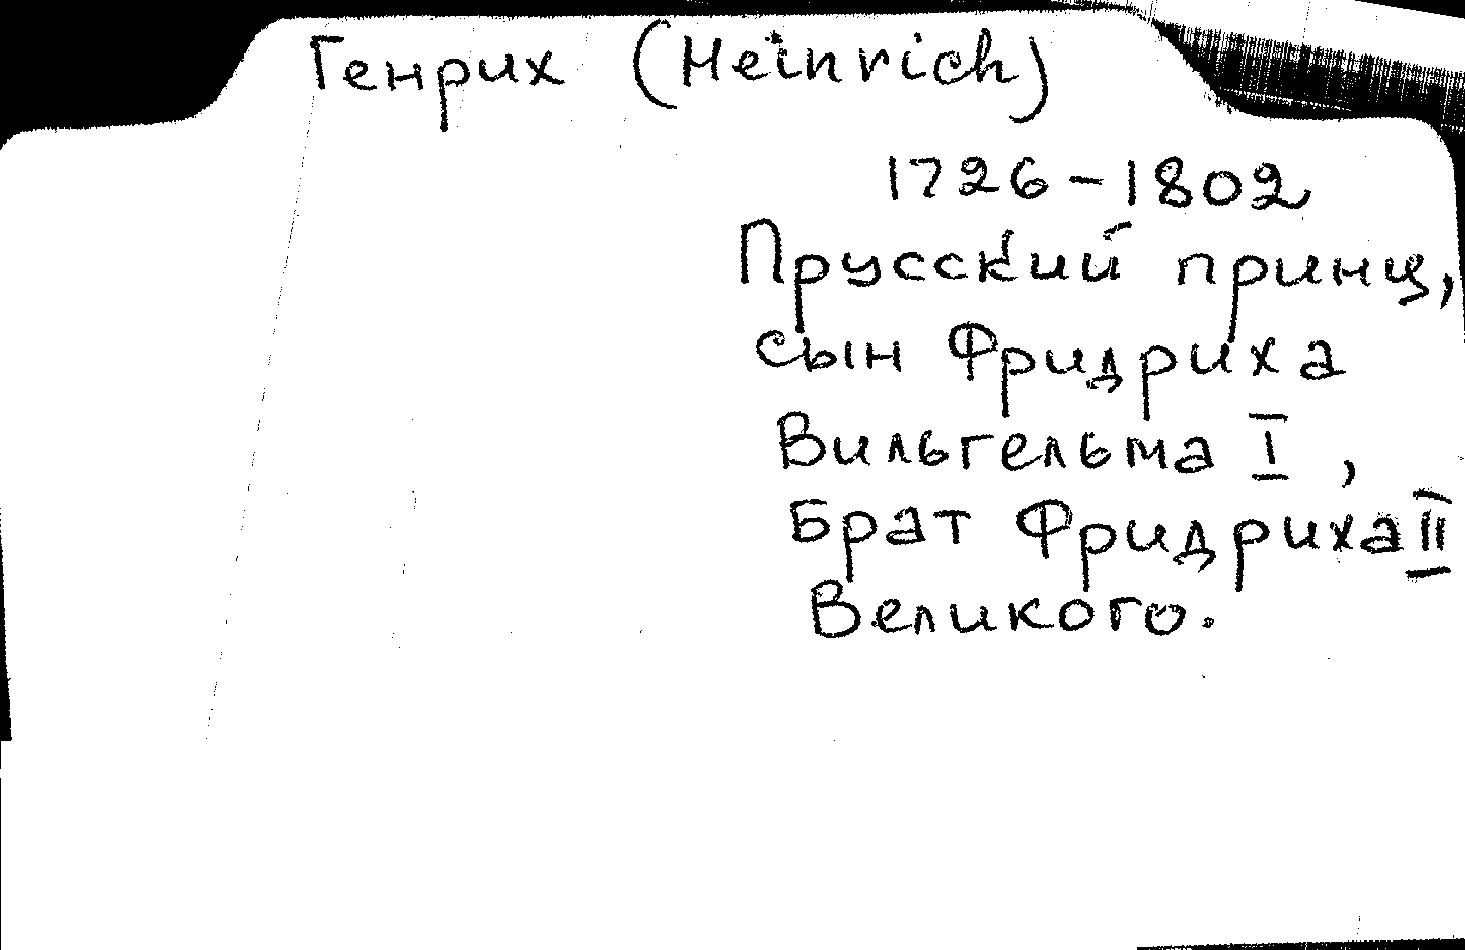 Генрих (Heinrich)
1726-1802
Прусский принц,
сын Фридриха
Вильгельма I,
Брат Фридриха II
Великого.